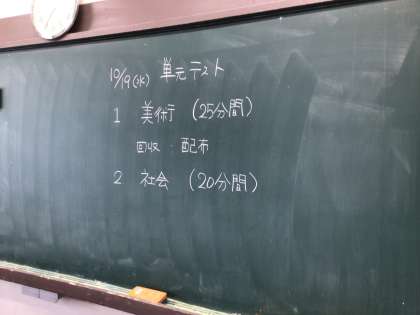 10/19(水) 単元テスト
1 美術 (25分間)
回収・配布
2 社会 (20分間)